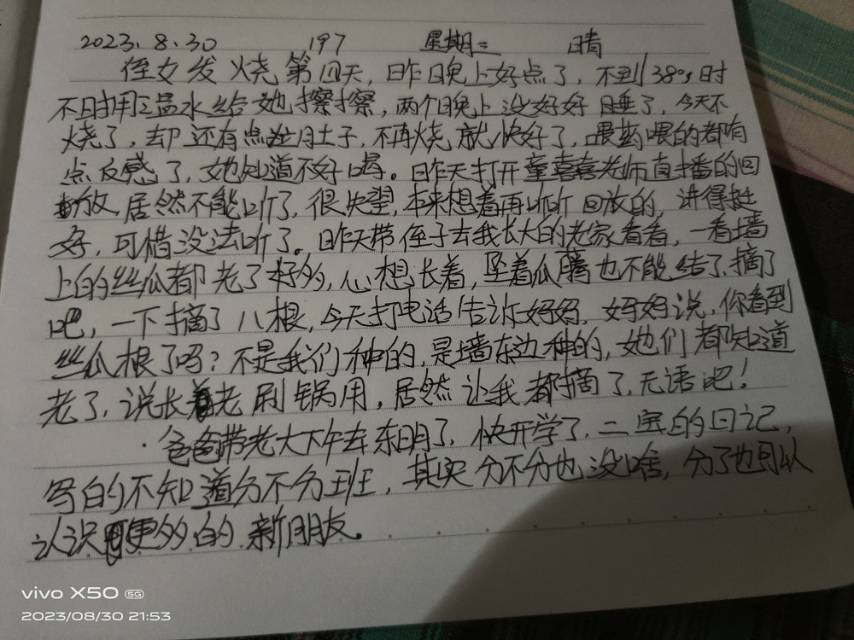 2023.8.30 197 星期三 晴
侄女发烧第四天,昨晚上好点了,不到38°,时
不时用温水给她擦擦,两个晚上没好好睡了,今天不
烧了,却还有点拉肚子,不再烧就快好了,喂药喂的都有
点反感了,她知道不好喝。昨天打开童喜喜老师直播的回
放,居然不能听了,很失望,本来想着再听听回放的,讲得挺
好,可惜没法听了。昨天带侄子去我长大的老家看看,一看墙
上的丝瓜都老了好多,心想长着,坠着瓜腾也不能结了,摘了
吧,一下摘了八根,今天打电话告诉妈妈,妈妈说,你看到
丝瓜根了吗?不是我们种的,是墙东边种的,她们都知道
老了,说长着老刷锅用,居然让我都摘了,无语吧!
爸爸带老大下午去东明了,快开学了,二宝的日记,
写的不知道分不分班,其实分不分也没啥,分了也可以
认识更多的新朋友。
vivo X50 5G
2023/08/30 21:53